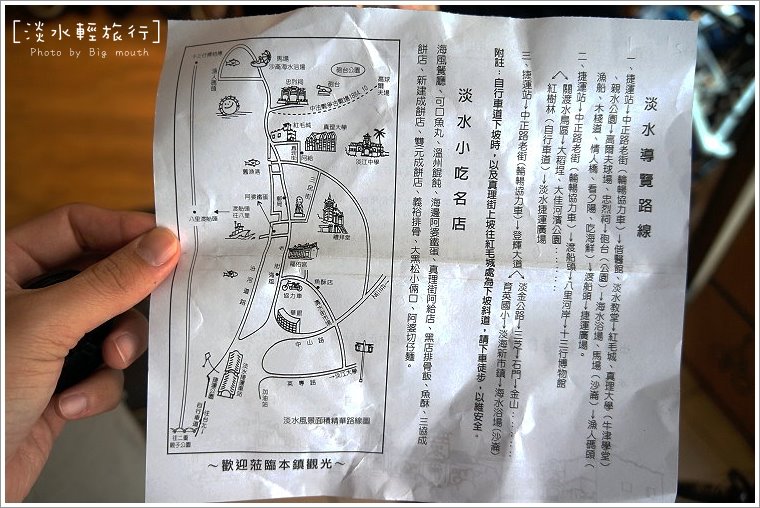 [淡水輕旅行]
Photo by Big mouth
淡水導覽路線
一、捷運站→中正路老街(輪暢協力車)→偕醫館、淡水教堂→紅毛城、真理大學(牛津學堂)
親水公園→高爾夫球場、忠烈祠→砲台(公園)→海水浴場、馬場(沙崙)→漁人碼頭(
漁船、木棧道、情人橋、看夕陽、吃海鮮)→渡船頭→捷運廣場。
二、捷運站→中正路老街(輪暢協力車)→渡船頭→八里河岸→十三行博物館
關渡水鳥區→大稻埕、大佳河濱公園……
紅樹林(自行車道)→淡水捷運廣場
三、捷運站→中正路老街(輪暢協力車)→登輝大道
淡金公路→三芝→石門→金山……
育英國小→淡海新市鎮→海水浴場(沙崙)
附註:自行車道下坡時,以及真理街上坡往紅毛城處為下坡斜道,請下車徒步,以維安全。
淡水小吃名店
海風餐廳、可口魚丸、溫州餛飩、海邊阿婆鐵蛋、真理街阿給店、黑店排骨飯、魚酥、三協成
餅店、新建成餅店、雙元成餅店、義裕排骨、大黑松小倆口、阿婆切仔麵。
馬場
淡海海水浴場
砲台公園
忠烈祠
砲台
高球爾夫場
漁人碼頭
紅毛城
真理大學
淡江中學
阿給
舊漁港
阿婆鐵蛋
三民街
八里渡船頭
渡船頭往八里
禮拜堂
龍山寺
老街
海風
魚酥店
沿河環路
協力車
畢館
中山路
英專路
淡江大學
淡水捷運車站
捷運公園
加油站
自行車道
往台北
往二重親子公園
淡水風景面積精華路線圖
~歡迎蒞臨本鎮觀光~